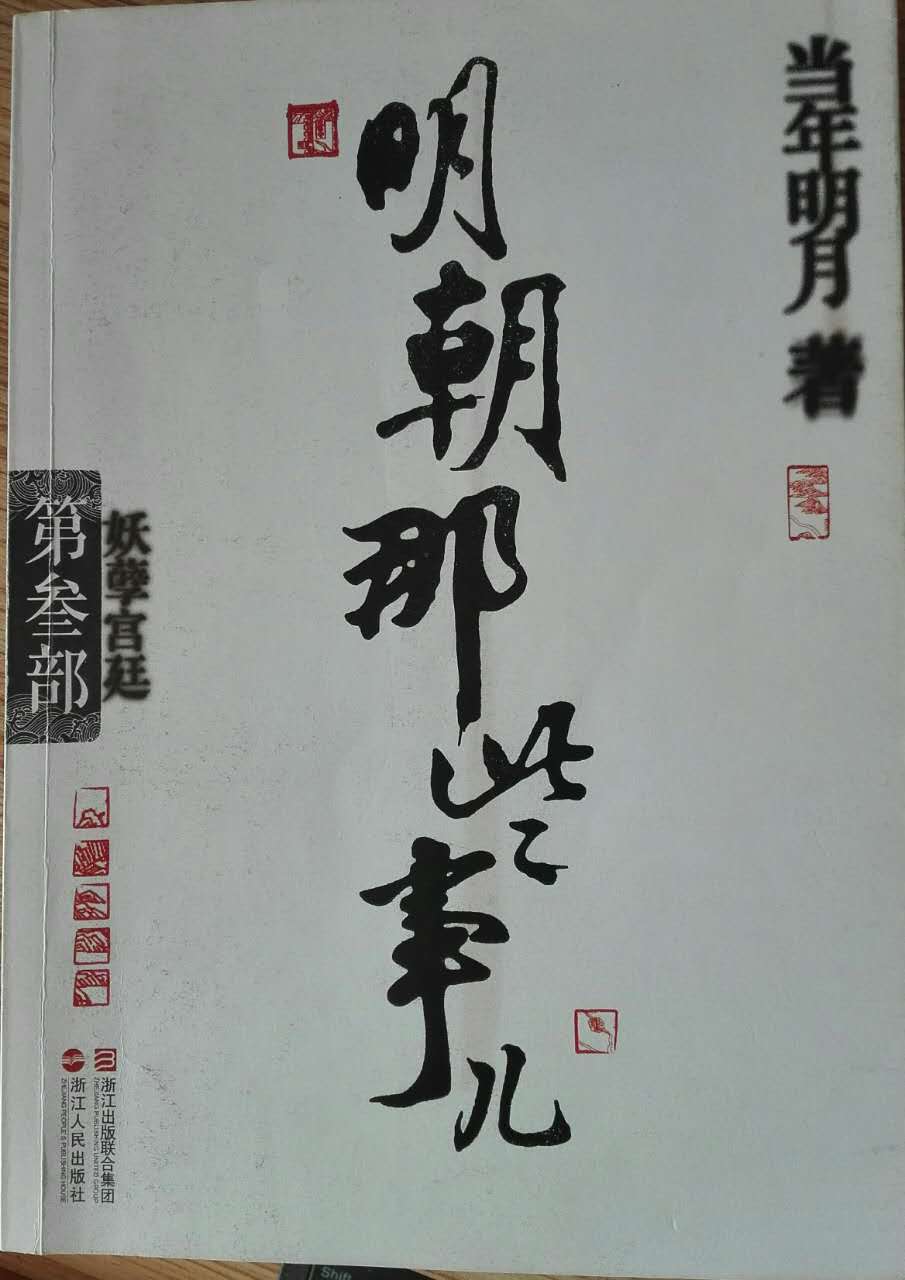 当年明月 著
明朝那些事儿
妖孽宫廷
第叁部
浙江出版联合集团
ZHEJIANG PUBLISHING UNITED GROUP
浙江人民出版社
ZHEJIANG PEOPLE'S PUBLISHING HOUSE
Shift